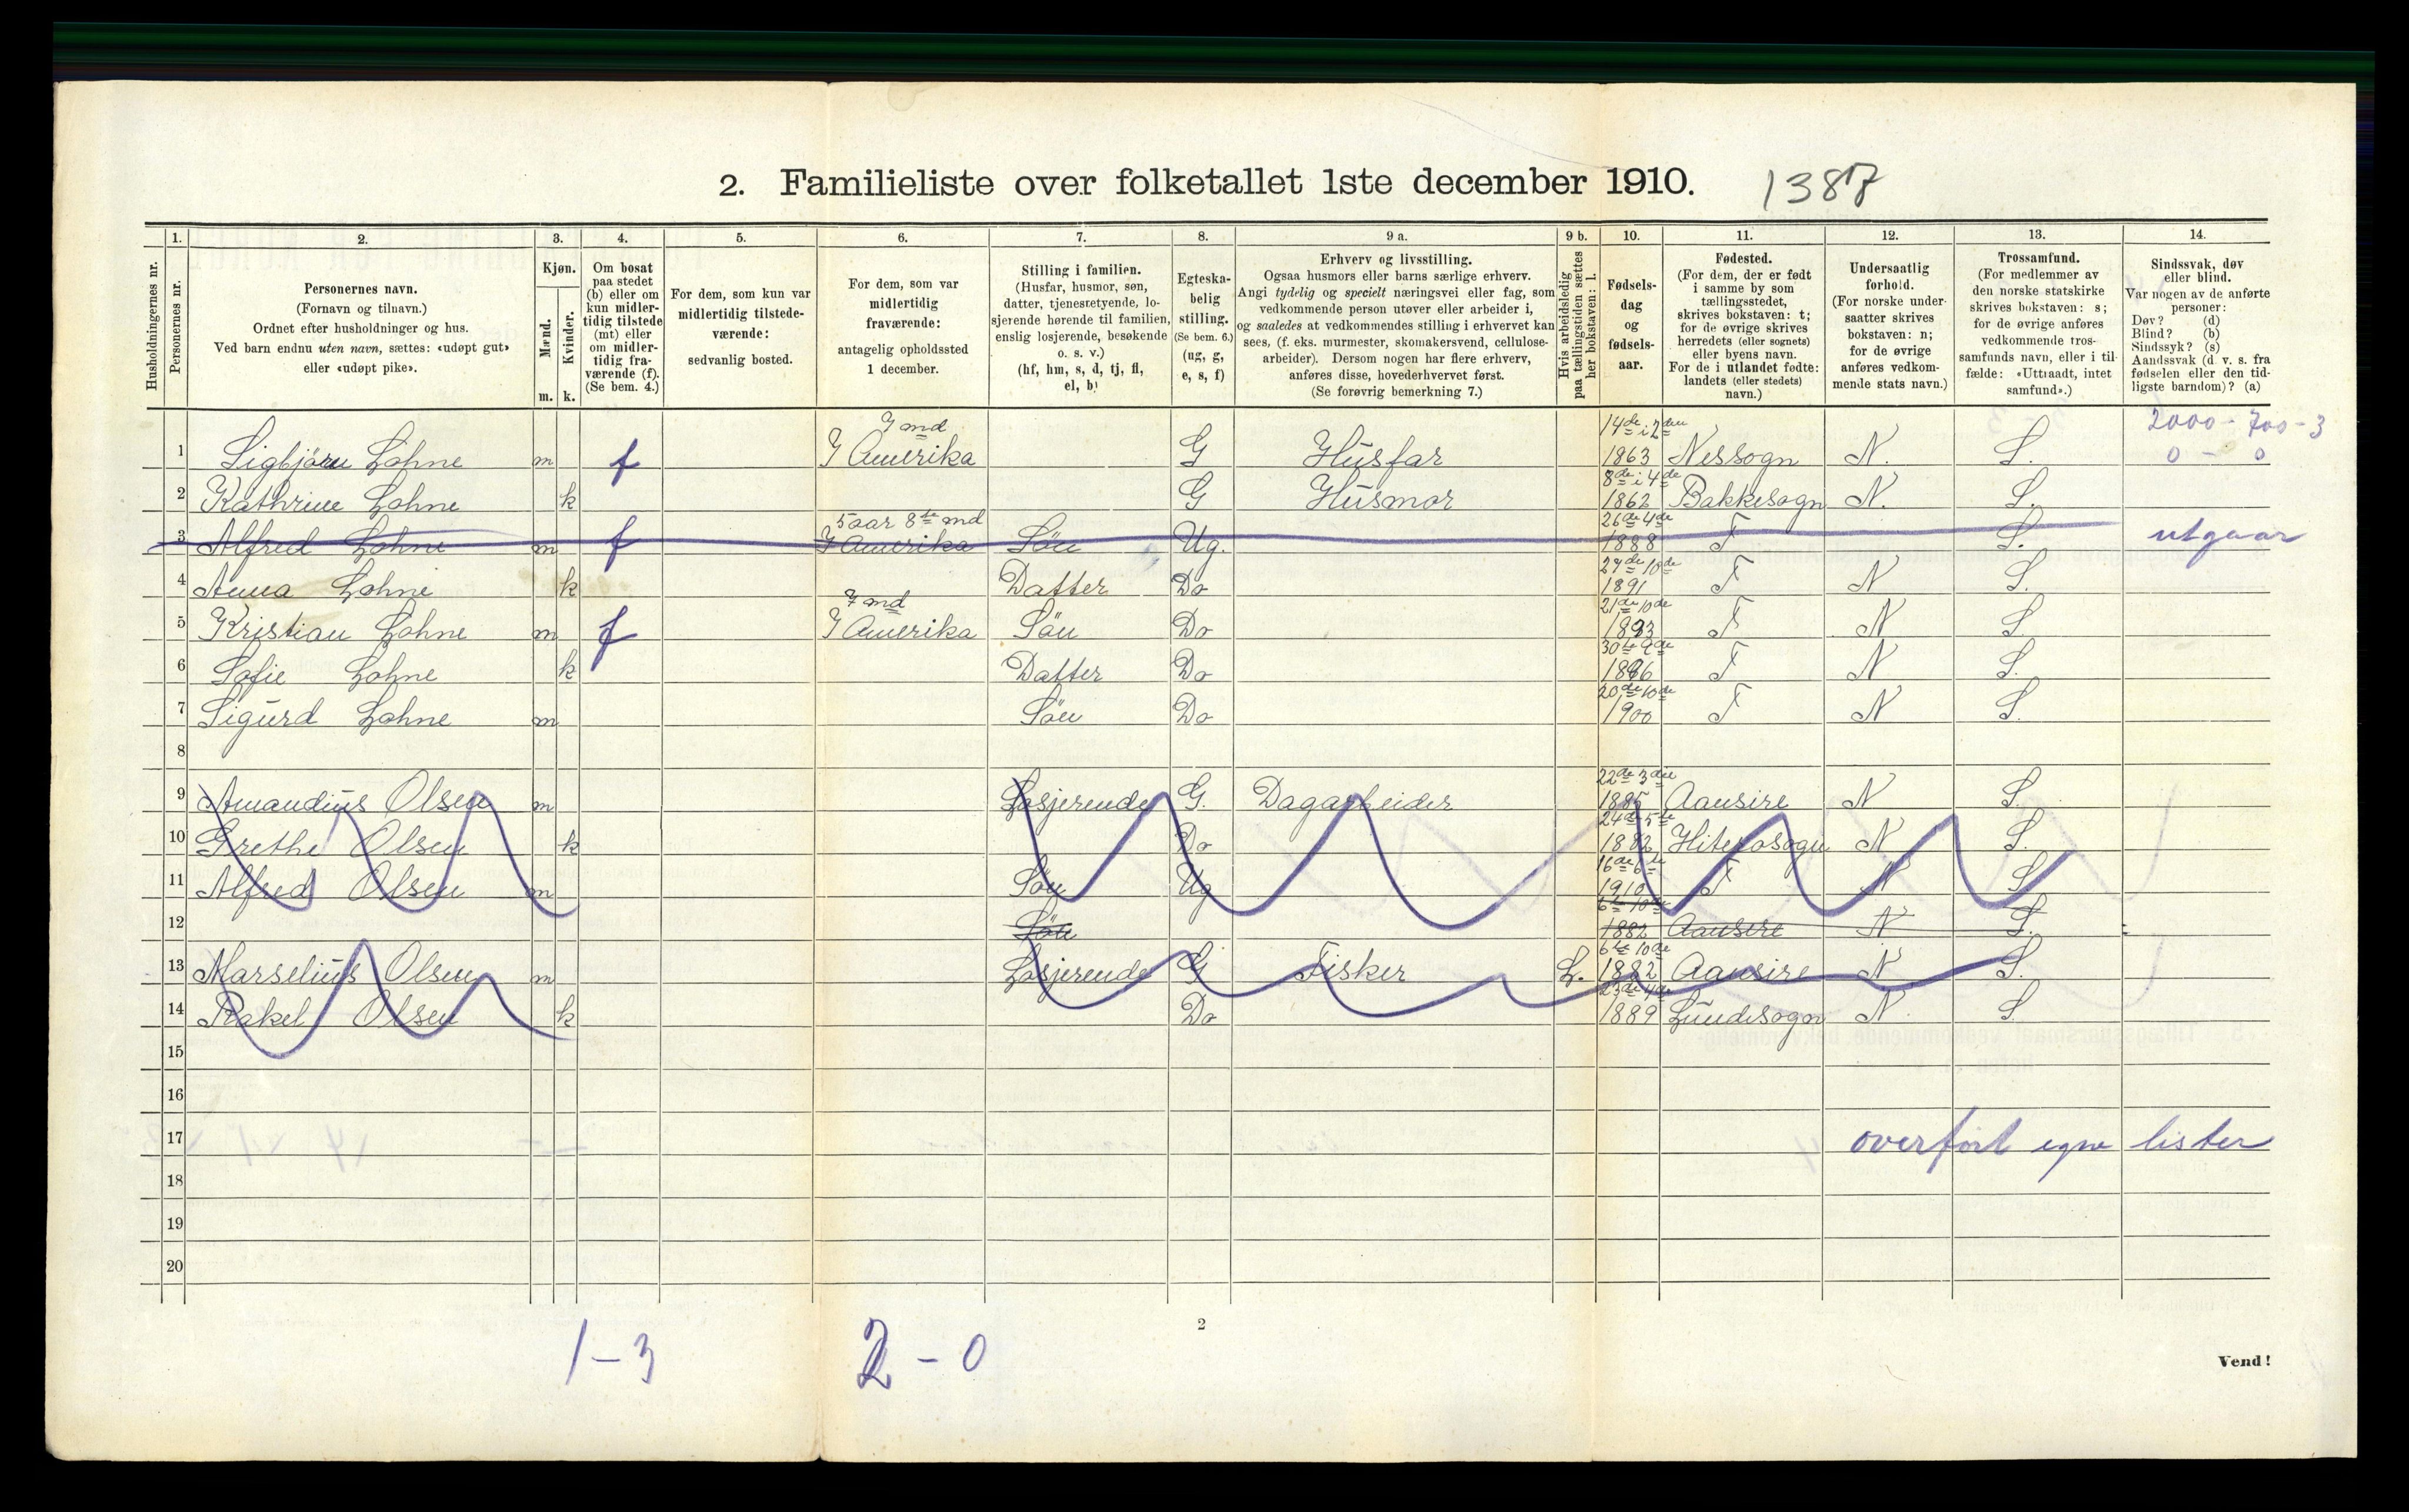 2. Familieliste over folketallet 1ste december 1910. 1387
Husholdningernes nr.
1. Personernes nr.
2. Personernes navn.
(Fornavn og tilnavn.)
Ordnet efter husholdninger og hus.
Ved barn endnu uten navn, sættes: «udøpt gut»
eller «udøpt pike».
3. Kjøn.
Mænd. Kvinder.
m. k.
4. Om bosat
paa stedet
(b) eller om
kun midler-
tidig tilstede
(mt) eller
om midler-
tidig fra-
værende (f).
(Se bem. 4.)
5. For dem, som kun var
midlertidig tilstede-
værende:
sedvanlig bosted.
6. For dem, som var
midlertidig
fraværende:
antagelig opholdssted
1 december.
7. Stilling i familien.
(Husfar, husmor, søn,
datter, tjenestetyende, lo-
sjerende hørende til familien,
enslig losjerende, besøkende
o. s. v.)
(hf, hm, s, d, tj, fl,
el, b)
8. Egteska-
belig
stilling.
(Se bem. 6.)
(ug, g,
e, s, f)
9 a. Erhverv og livsstilling.
Ogsaa husmors eller barns særlige erhverv.
Angi tydelig og specielt næringsvei eller fag, som
vedkommende person utøver eller arbeider i,
og saaledes at vedkommendes stilling i erhvervet kan
sees, (f. eks. murmester, skomakersvend, cellulose-
arbeider). Dersom nogen har flere erhverv,
anføres disse, hovederhvervet først.
(Se forøvrig bemerkning 7.)
9 b. Hvis arbeidsledig
paa tællingstiden sættes
her bokstaven: l.
10. Fødsels-
dag
og
fødsels-
aar.
11. Fødested.
(For dem, der er født
i samme by som
tællingsstedet,
skrives bokstaven: t;
for de øvrige skrives
herredets (eller sognets)
eller byens navn.
For de i utlandet fødte:
landets (eller stedets)
navn.)
12. Undersaatlig
forhold.
(For norske under-
saatter skrives
bokstaven: n;
for de øvrige
anføres vedkom-
mende stats navn.)
13. Trossamfund.
(For medlemmer av
den norske statskirke
skrives bokstaven: s;
for de øvrige anføres
vedkommende tros-
samfunds navn, eller i til-
fælde: «Uttraadt, intet
samfund».)
14. Sindssvak, døv
eller blind.
Var nogen av de anførte
personer:
Døv? (d)
Blind? (b)
Sindssyk? (s)
Aandssvak (d. v. s. fra
fødselen eller den tid-
ligste barndom)? (a)
7 md 14de i 2den 2000 - 700 - 3
1 Sigbjörn Lohne m f I Amerika G Husfar 1863 Nessogn N. S. 0 - 0
8de i 4de
2 Kathrine Lohne k G Husmor 1862 Bakkesogn N. S.
5 aar 8te md 26de 4de
3 Alfred Lohne m f I Amerika Sön Ug. 1888 F S. utgaar
27de 10de
4 Anna Lohne k Datter Do 1891 F N S.
7 md 21de 10de
5 Kristian Lohne m f I Amerika Sön Do 1893 F N S
30te 9de
6 Sofie Lohne k Datter Do 1896 F N S.
20de 10de
7 Sigurd Lohne m Sön Do 1900 F N S.
8
22de 3die
9 Amandius Olsen m Losjerende G. Dagarbeider 1885 Aansire N S.
24de 5te
10 Grethe Olsen k Do 1882 Hiterosogn N S.
16de 6te
11 Alfred Olsen m Sön Ug 1910 F N S
6te 10de
12 Sön 1882 Aansire N S.
6te 10de
13 Marselius Olsen m Losjerende G Fisker L. 1882 Aansire N S.
23de 4de
14 Rakel Olsen k Do 1889 Lundesogn N. S.
15
16
17 overført egne lister
18
19
20
1 - 3 2 - 0
2
Vend!